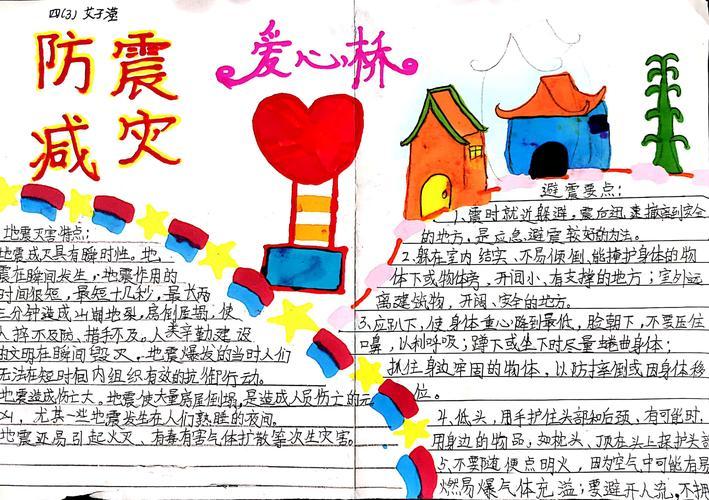 四(3) 艾子滢
防震
减灾
爱心桥
地震灾害特点:
地震成灾具有瞬时性。地
震在瞬间发生,地震作用的
时间很短,最短十几秒,最长两
三分钟造成山崩地裂,房倒屋塌,使
人猝不及防、措手不及。人类辛勤建设
的文明在瞬间毁灭,地震爆发的当时人们
无法在短时间内组织有效的抗御行动。
地震造成伤亡大。地震使大量房屋倒塌,是造成人员伤亡的元
凶,尤其一些地震发生在人们熟睡的夜间。
地震还易引起火灾、有毒有害气体扩散等次生灾害。
避震要点:
1、震时就近躲避,震后迅速撤离到安全
的地方,是应急避震较好的办法。
2.躲在室内结实、不易倾倒、能掩护身体的物
体下或物体旁,开间小、有支撑的地方;室外远
离建筑物,开阔、安全的地方。
3.应趴下,使身体重心降到最低,脸朝下,不要压住
口鼻,以利呼吸;蹲下或坐下时尽量蜷曲身体;
抓住身边牢固的物体,以防摔倒或因身体移
位。
4.低头,用手护住头部和后颈,有可能时,
用身边的物品,如枕头、顶在头上保护头部
5.不要随便点明火,因为空气中可能有易
燃易爆气体充溢;要避开人流,不拥